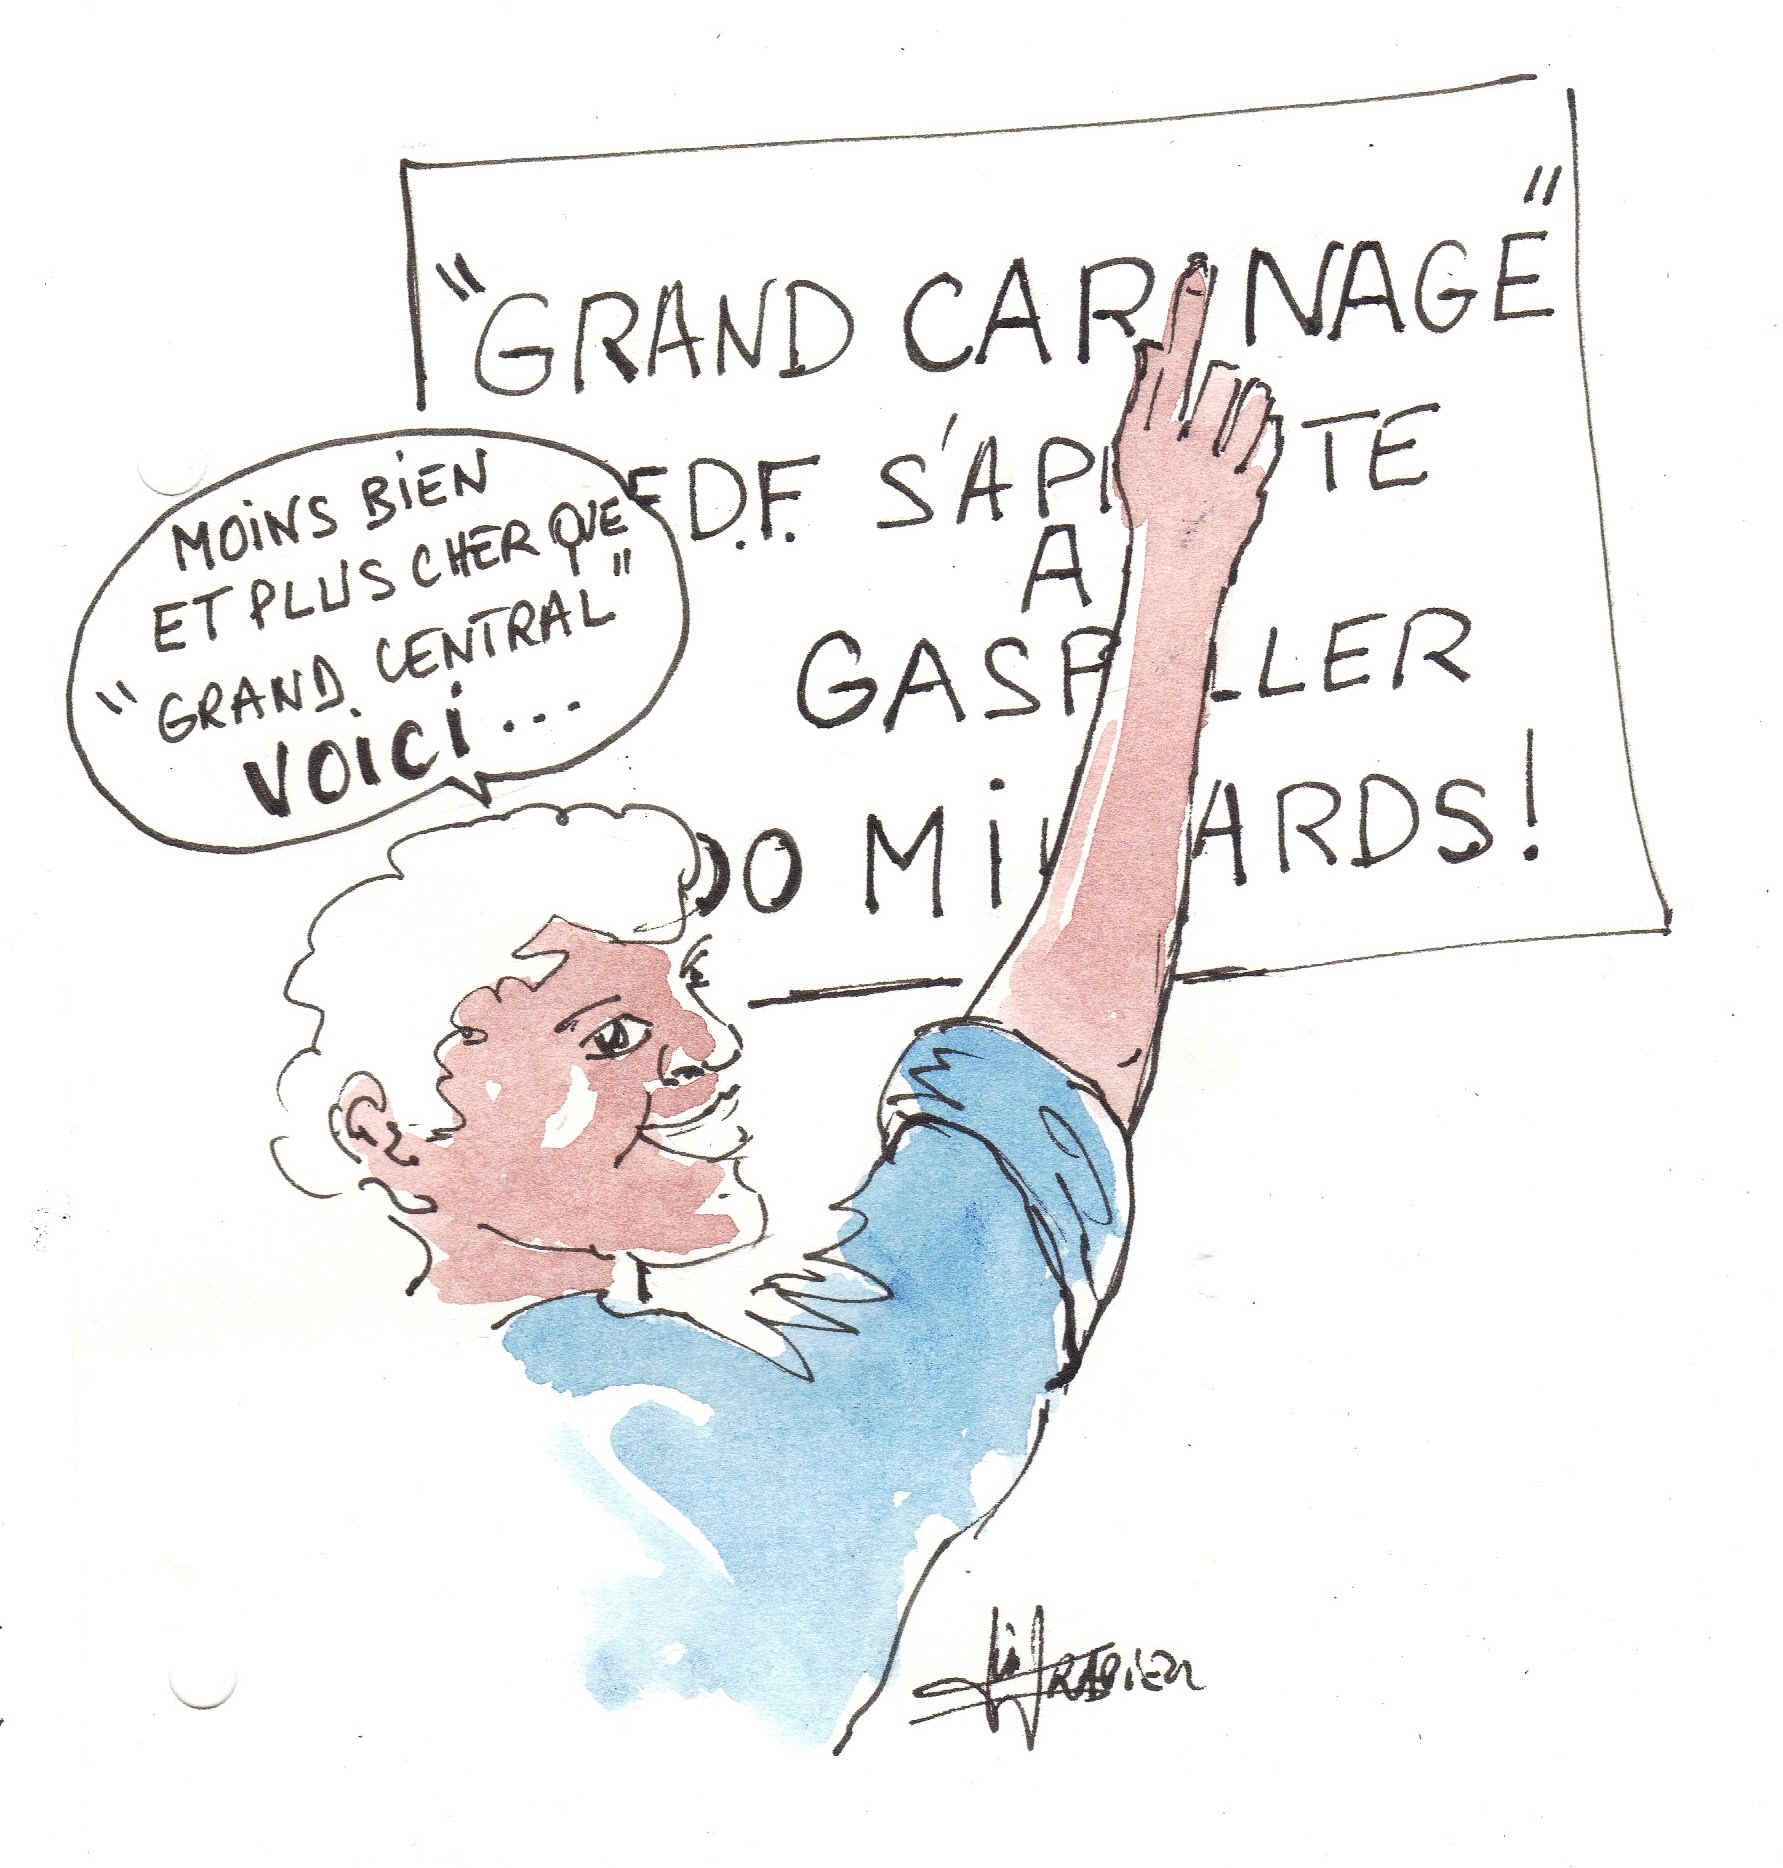 MOINS BIEN
ET PLUS CHER QUE
"GRAND CENTRAL"
VOICI...
"GRAND CAR NAGE"
E.D.F. S'AP TE
A
GASP LLER
00 MIL ARDS!